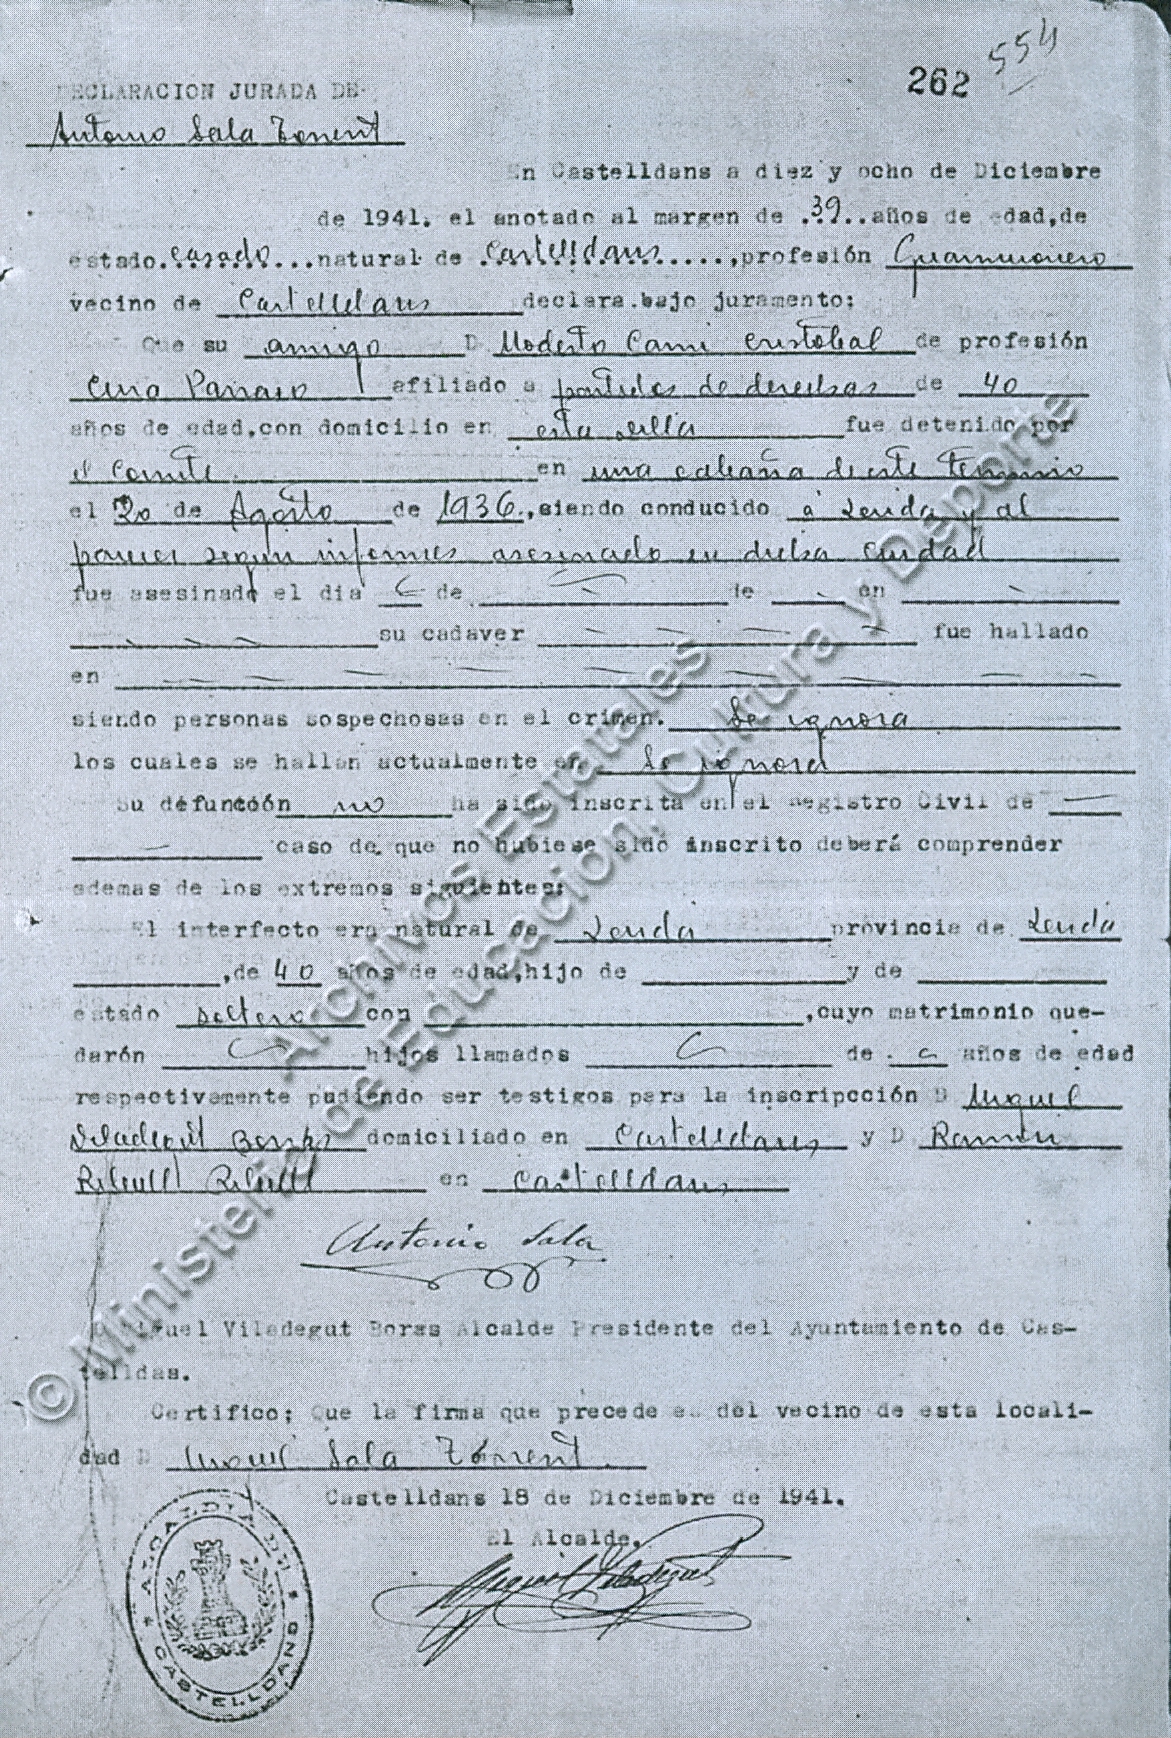 554
262
DECLARACION JURADA DE
Antonio Sala Torrent
En Castelldans a diez y ocho de Diciembre
de 1941. el anotado al margen de .39..años de edad,de
estado.casado...natural de Castelldans.....,profesión Guarnicionero
vecino de Castelldans declara bajo juramento:
Que su amigo D. Modesto Cami Cristobal de profesión
Cura Parraco afiliado a partidos de derechas de 40
años de edad,con domicilio en esta villa fue detenido por
el Comite en una cabaña de este termino
el 20 de Agosto de 1936.,siendo conducido á Lerida y al
parecer según informes asesinado en dicha ciudad
fue asesinado el dia de de en
su cadaver fue hallado
en
siendo personas sospechosas en el crimen. Se ignora
los cuales se hallan actualmente en Se ignora
Su defuncóón no ha sido inscrita en el Registro Civil de
caso de que no hubiese sido inscrito deberá comprender
ademas de los extremos siguientes:
El interfecto era natural de Lerida provincia de Lerida
,de 40 años de edad,hijo de y de
estado soltero con ,cuyo matrimonio que-
darón hijos llamados de años de edad
respectivamente pudiendo ser testigos para la inscripcción D Miguel
Viladegut Borras domiciliado en Castelldans y D. Ramón
Ribull Ribull en Castelldans
Antonio Sala
Miguel Viladegut Boras Alcalde Presidente del Ayuntamiento de Cas-
telldas.
Certifico; Que la firma que precede es del vecino de esta locali-
dad D Miguel Sala Torrent.
Castelldans 18 de Diciembre de 1941.
El Alcalde.
Miguel Viladegut
ALCALDIA DE
CASTELLDANS
© Ministerio de Educación, Cultura y Deporte
Archivos Estatales